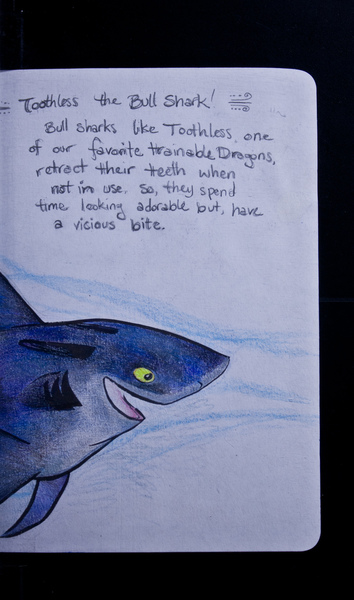 Toothless the Bull Shark!
Bull sharks like Toothless, one
of our favorite trainable Dragons,
retract their teeth when
not in use. So, they spend
time looking adorable but, have
a vicious bite.